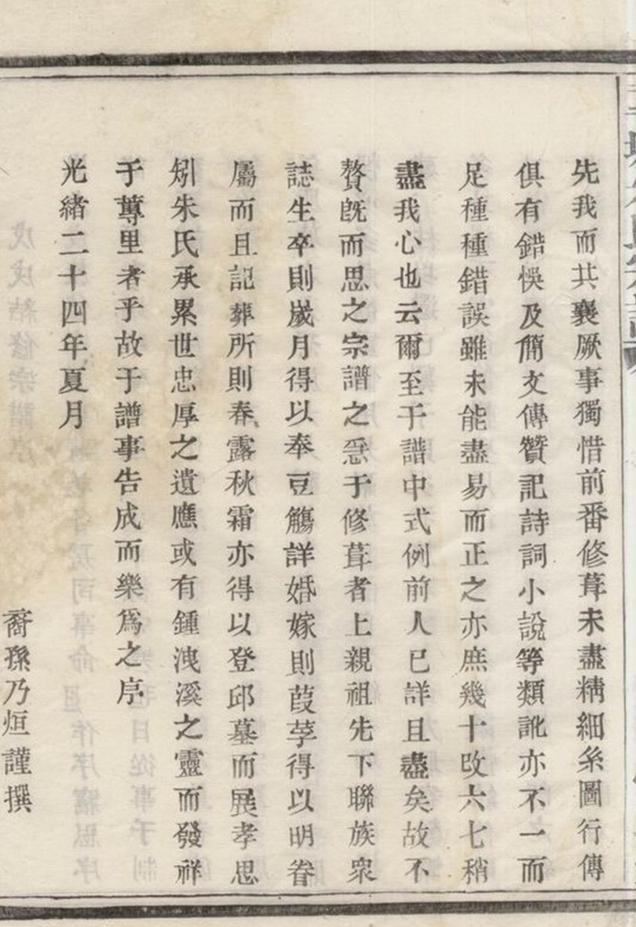 先我而共襄厥事獨惜前番修葺未盡精細糸圖行傳
俱有錯悞及簡文傳贊記詩詞小說等類訛亦不一而
足種種錯誤雖未能盡易而正之亦庶幾十改六七稍
盡我心也云爾至于譜中式例前人已詳且盡矣故不
贅旣而思之宗譜之亟于修葺者上親祖先下聯族衆
誌生卒則嵗月得以奉豆觴詳婚嫁則葭莩得以明眷
屬而且記葬所則春露秋霜亦得以登邱墓而展孝思
矧朱氏承累世忠厚之遺應或有鍾洩溪之靈而發祥
于蓴里者乎故于譜事告成而樂爲之序
光緒二十四年夏月
裔孫乃烜謹撰